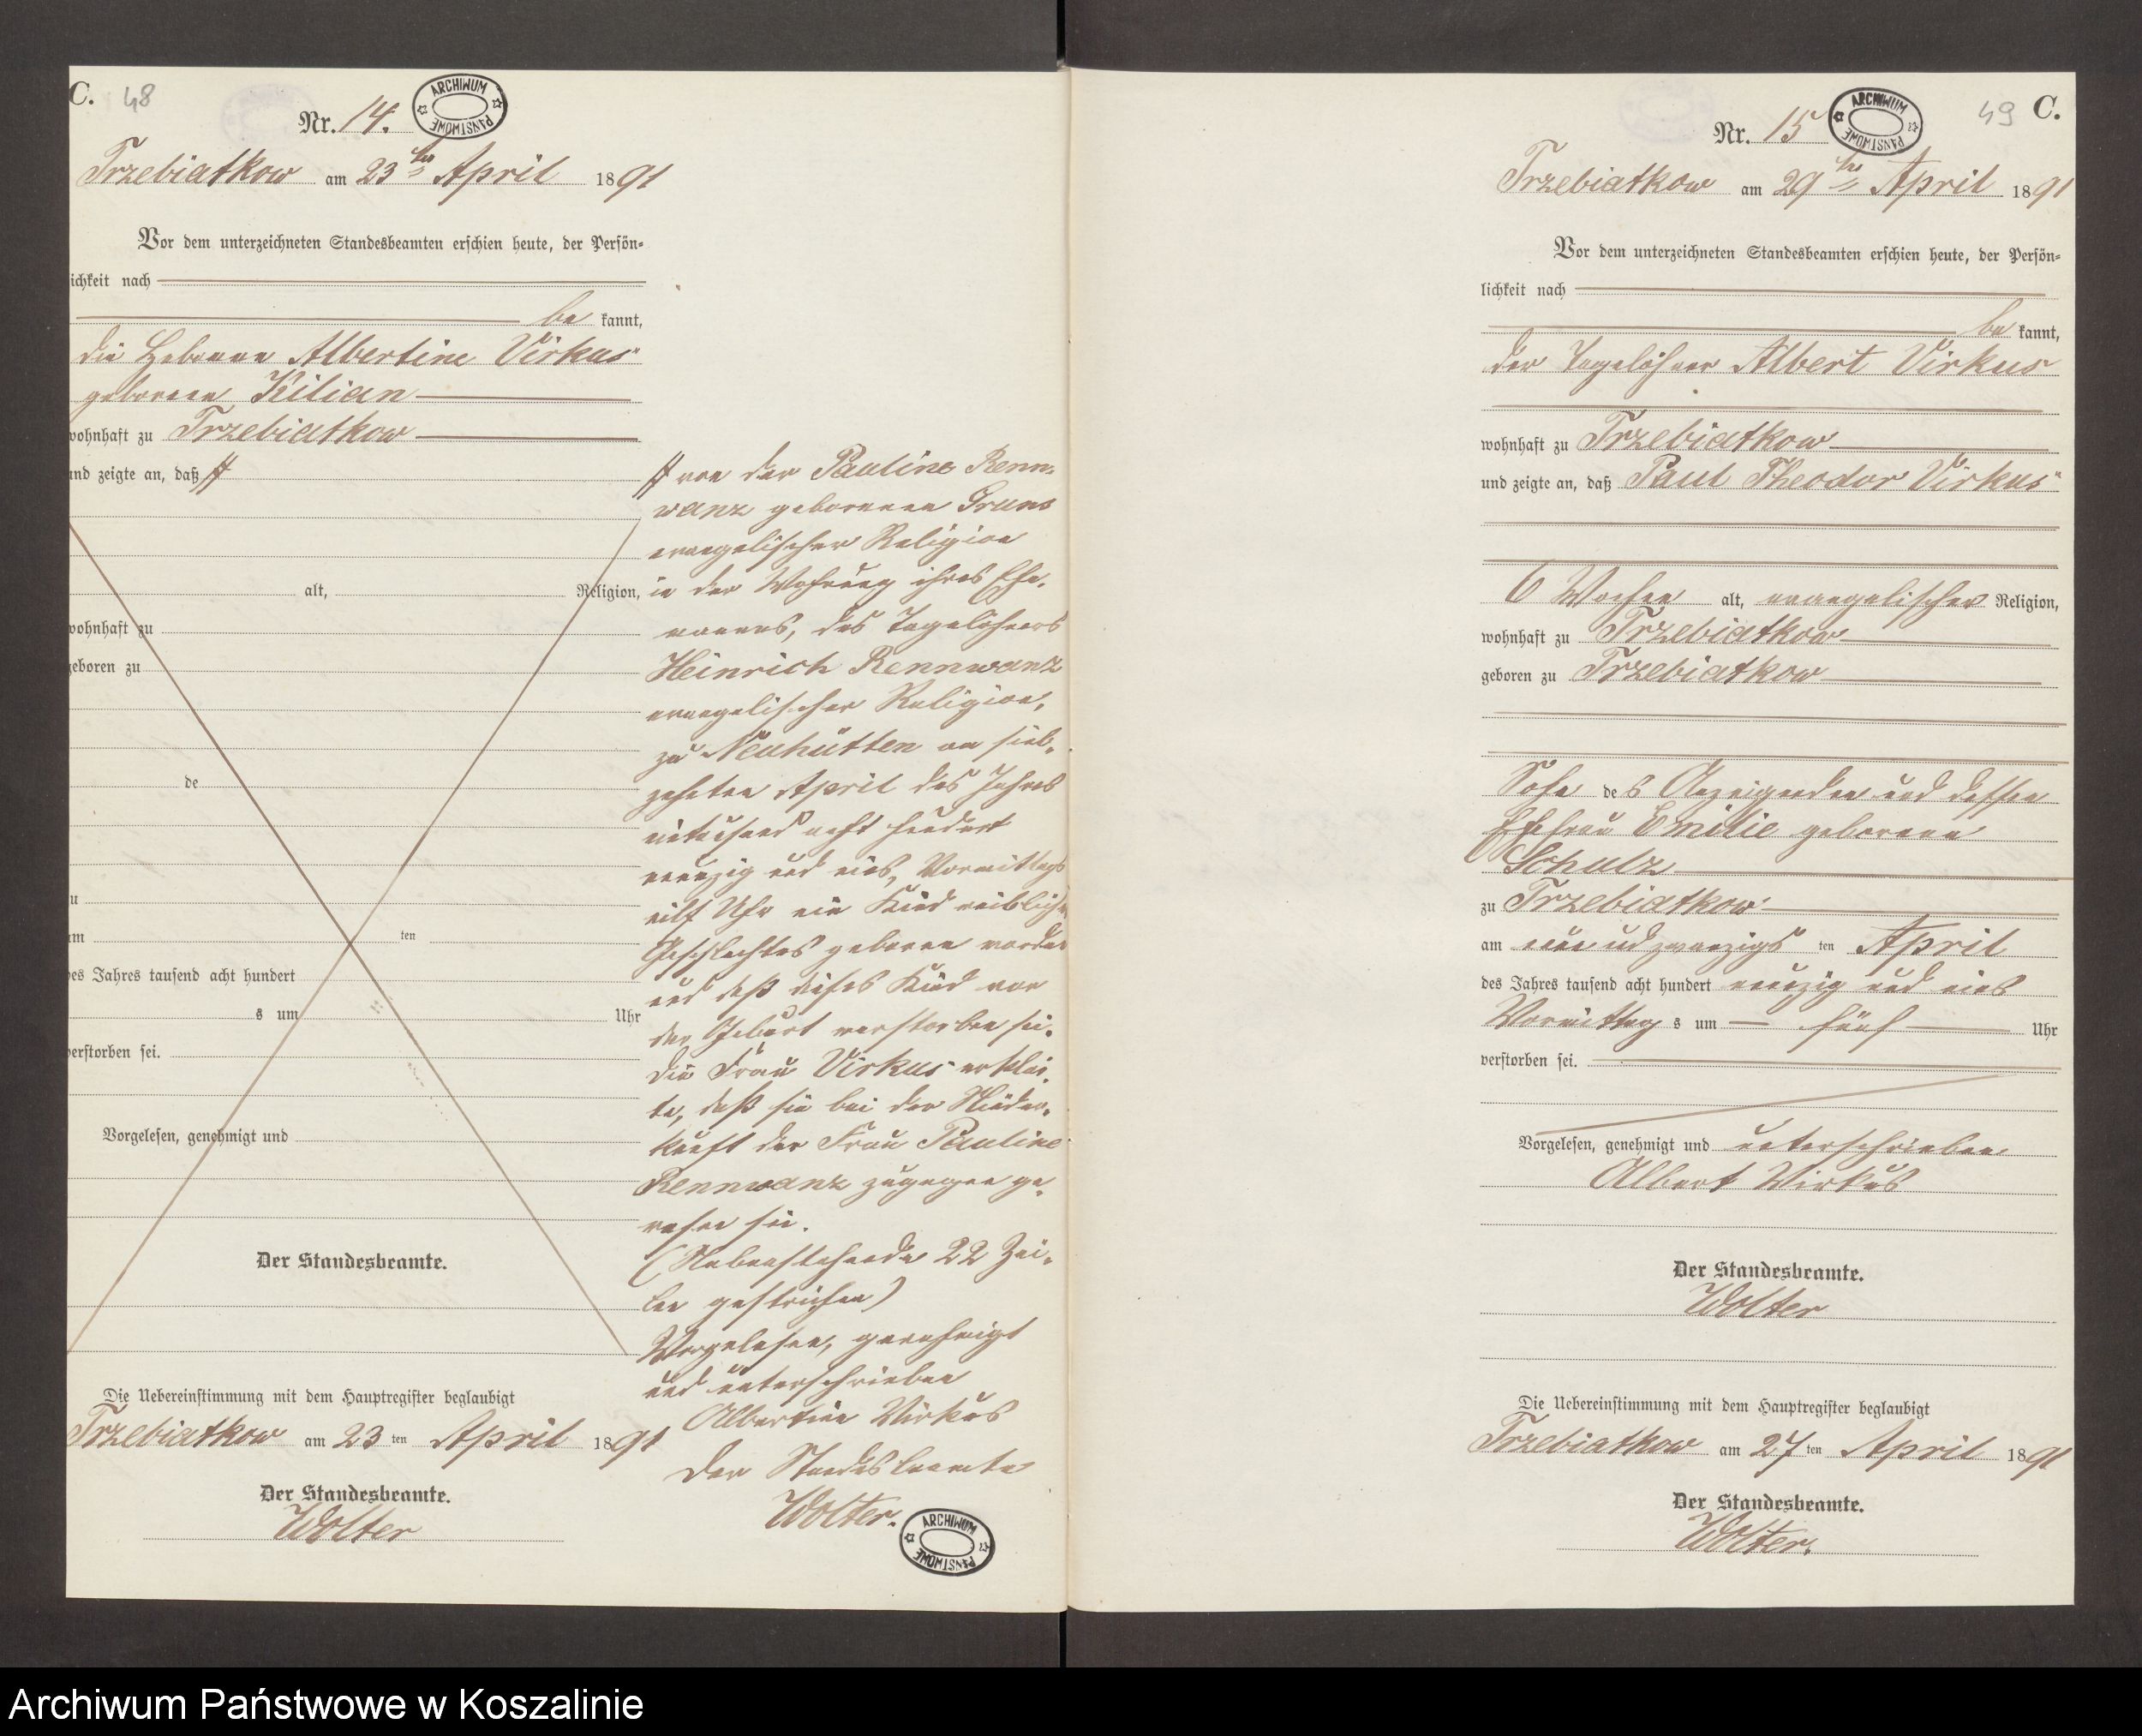 C. 48
Nr. 14.
ARCHIWUM PAŃSTWOWE
Trzebiatkow am 23ten April 1891
Vor dem unterzeichneten Standesbeamten erschien heute, der Persön-
lichkeit nach
be kannt,
die Hebamme Albertine Virkus
geborene Kilian
wohnhaft zu Trzebiatkow
und zeigte an, daß
alt, Religion,
wohnhaft zu
geboren zu
de
zu
am ten
des Jahres tausend acht hundert
s um Uhr
verstorben sei.
Vorgelesen, genehmigt und
Der Standesbeamte.
Die Uebereinstimmung mit dem Hauptregister beglaubigt
Trzebiatkow am 23 ten April 1891
Der Standesbeamte.
Wolter
von der Pauline Renn-
wanz geborenen
evangelischer Religion
in der Wohnung ihres Ehe-
mannes, des Tagelöhners
Heinrich Rennwanz
evangelischer Religion,
zu Neuhütten am sieb-
zehnten April des Jahres
eintausend acht hundert
neunzig und eins, Vormittags
eilf Uhr ein Kind weiblichen
Geschlechtes geboren worden
und daß dieses Kind vor
der Geburt verstorben sei.
Die Frau Virkus erklär-
te, daß sie bei der Nieder-
kunft der Frau Pauline
Rennwanz zugegen ge-
wesen sei.
(Nebenstehende 22 Zei-
len gestrichen)
Vorgelesen, genehmigt
und unterschrieben
Albertine Virkus
Der Standesbeamte
Wolter.
ARCHIWUM PAŃSTWOWE
49 C.
Nr. 15
ARCHIWUM PAŃSTWOWE
Trzebiatkow am 29ten April 1891
Vor dem unterzeichneten Standesbeamten erschien heute, der Persön-
lichkeit nach
be kannt,
der Tagelöhner Albert Virkus
wohnhaft zu Trzebiatkow
und zeigte an, daß Paul Theodor Virkus
6 Wochen alt, evangelischer Religion,
wohnhaft zu Trzebiatkow
geboren zu Trzebiatkow
Sohn des Anzeigenden und dessen
Ehefrau Emilie geborene
Schulz
zu Trzebiatkow
am neunundzwanzigs ten April
des Jahres tausend acht hundert neunzig und eins
Vormittag s um fünf Uhr
verstorben sei.
Vorgelesen, genehmigt und unterschrieben
Albert Virkus
Der Standesbeamte.
Wolter
Die Uebereinstimmung mit dem Hauptregister beglaubigt
Trzebiatkow am 27 ten April 1891
Der Standesbeamte.
Wolter.
Archiwum Państwowe w Koszalinie